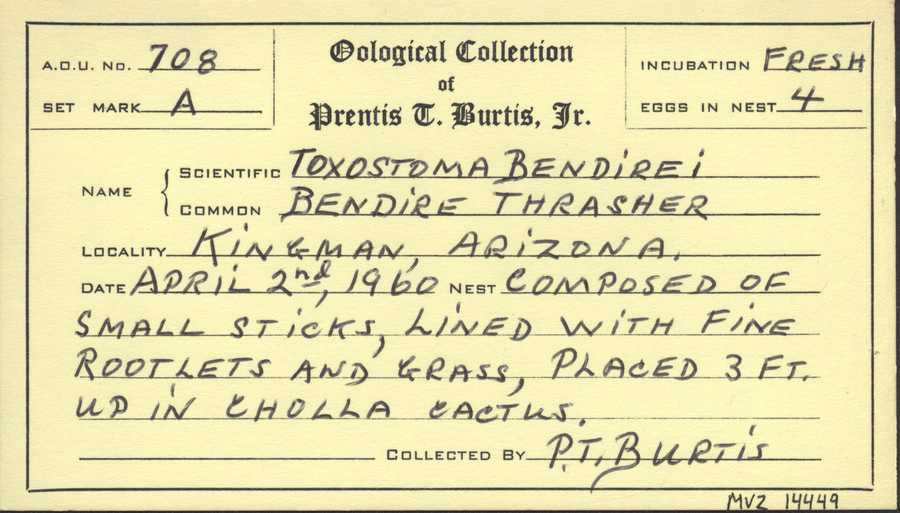 A.O.U. No. 708
SET MARK A
Oological Collection
of
Prentis T. Burtis, Jr.
INCUBATION FRESH
EGGS IN NEST 4
NAME { SCIENTIFIC TOXOSTOMA BENDIREI
COMMON BENDIRE THRASHER
LOCALITY KINGMAN, ARIZONA.
DATE APRIL 2nd, 1960 NEST COMPOSED OF
SMALL STICKS, LINED WITH FINE
ROOTLETS AND GRASS, PLACED 3 FT.
UP IN CHOLLA CACTUS.
COLLECTED BY P.T. BURTIS
MVZ 14449